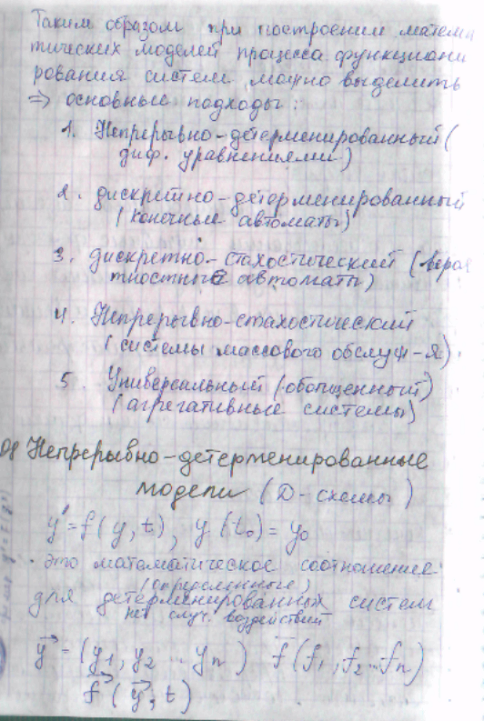 Таким образом при построении матема
тических моделей процесса функциони
рования систем можно выделить
⇒ основные подходы:
1. Непрерывно-детерменированный (
диф. уравнениями)
2. дискретно-детерменированный
(конечные автоматы)
3. дискретно-стахостический (веро
тностные автоматы)
4. Непрерывно-стахостический
(системы массового обслуж-я)
5. Универсальный (обопщенный)
(агрегативные системы)
Непрерывно-детерменированные
модели (D-схемы)
y' = f(y, t), y(t₀) = y₀
- это математическое соотношение
(определенные)
для детерменированных систем
нет случ. воздействий
y⃗ = (y₁, y₂ ... yₙ) f⃗ (f₁, f₂...fₙ)
f⃗ (y⃗, t)